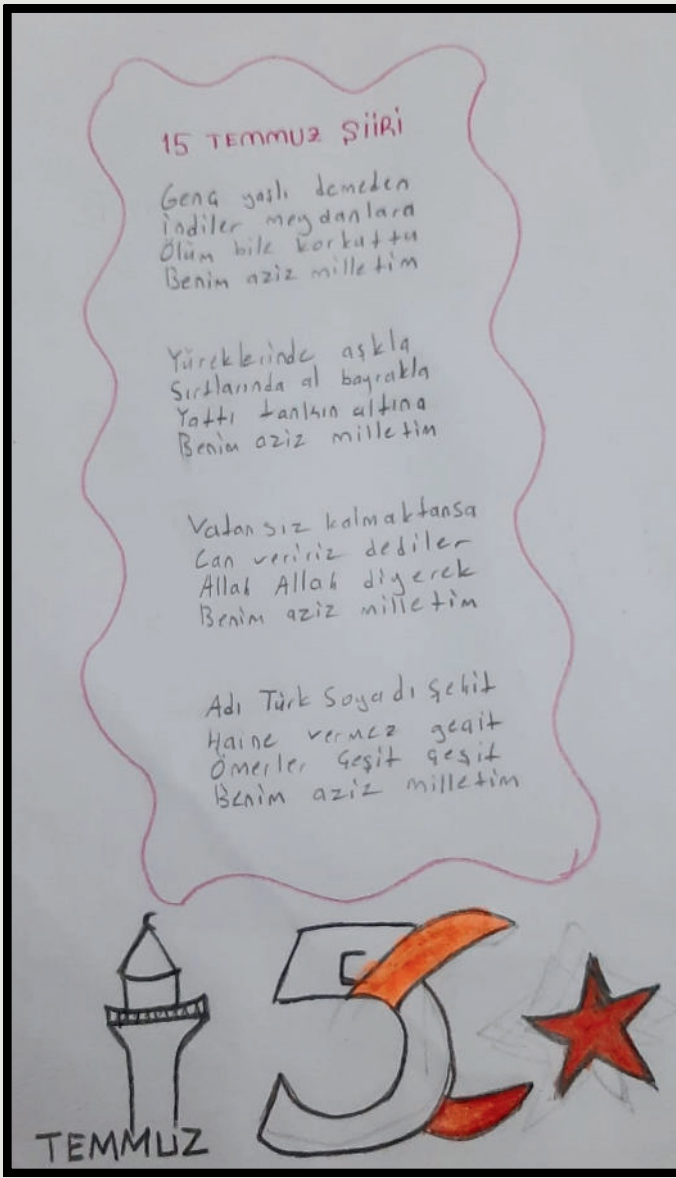 15 TEMMUZ ŞİİRİ
Genç yaşlı demeden
indiler meydanlara
Ölüm bile korkuttu
Benim aziz milletim
Yüreklerinde aşkla
Sırtlarında al bayrakla
Yattı tankın altına
Benim aziz milletim
Vatansız kalmaktansa
Can veririz dediler
Allah Allah diyerek
Benim aziz milletim
Adı Türk Soyadı Şehit
Haine vermez geçit
Ömerler çeşit çeşit
Benim aziz milletim
15
TEMMUZ